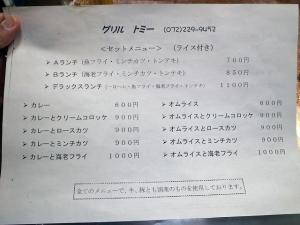 グリル トミー (072)229-9492
<セットメニュー> (ライス付き)
➢ Aランチ(魚フライ・ミンチカツ・トンテキ) 700円
➢ Bランチ(海老フライ・ミンチカツ・トンテキ) 850円
➢ デラックスランチ(・魚フライ・海老フライ・トンテキ) 1100円
➢ カレー 600円
➢ カレーとクリームコロッケ 900円
➢ カレーとロースカツ 900円
➢ カレーとミンチカツ 900円
➢ カレーと海老フライ 1000円
➢ オムライス 600円
➢ オムライスとクリームコロッケ 900円
➢ オムライスとロースカツ 900円
➢ オムライスとミンチカツ 900円
➢ オムライスと海老フライ 1000円
全てのメニューで、牛、豚とも国産のものを使用しております。